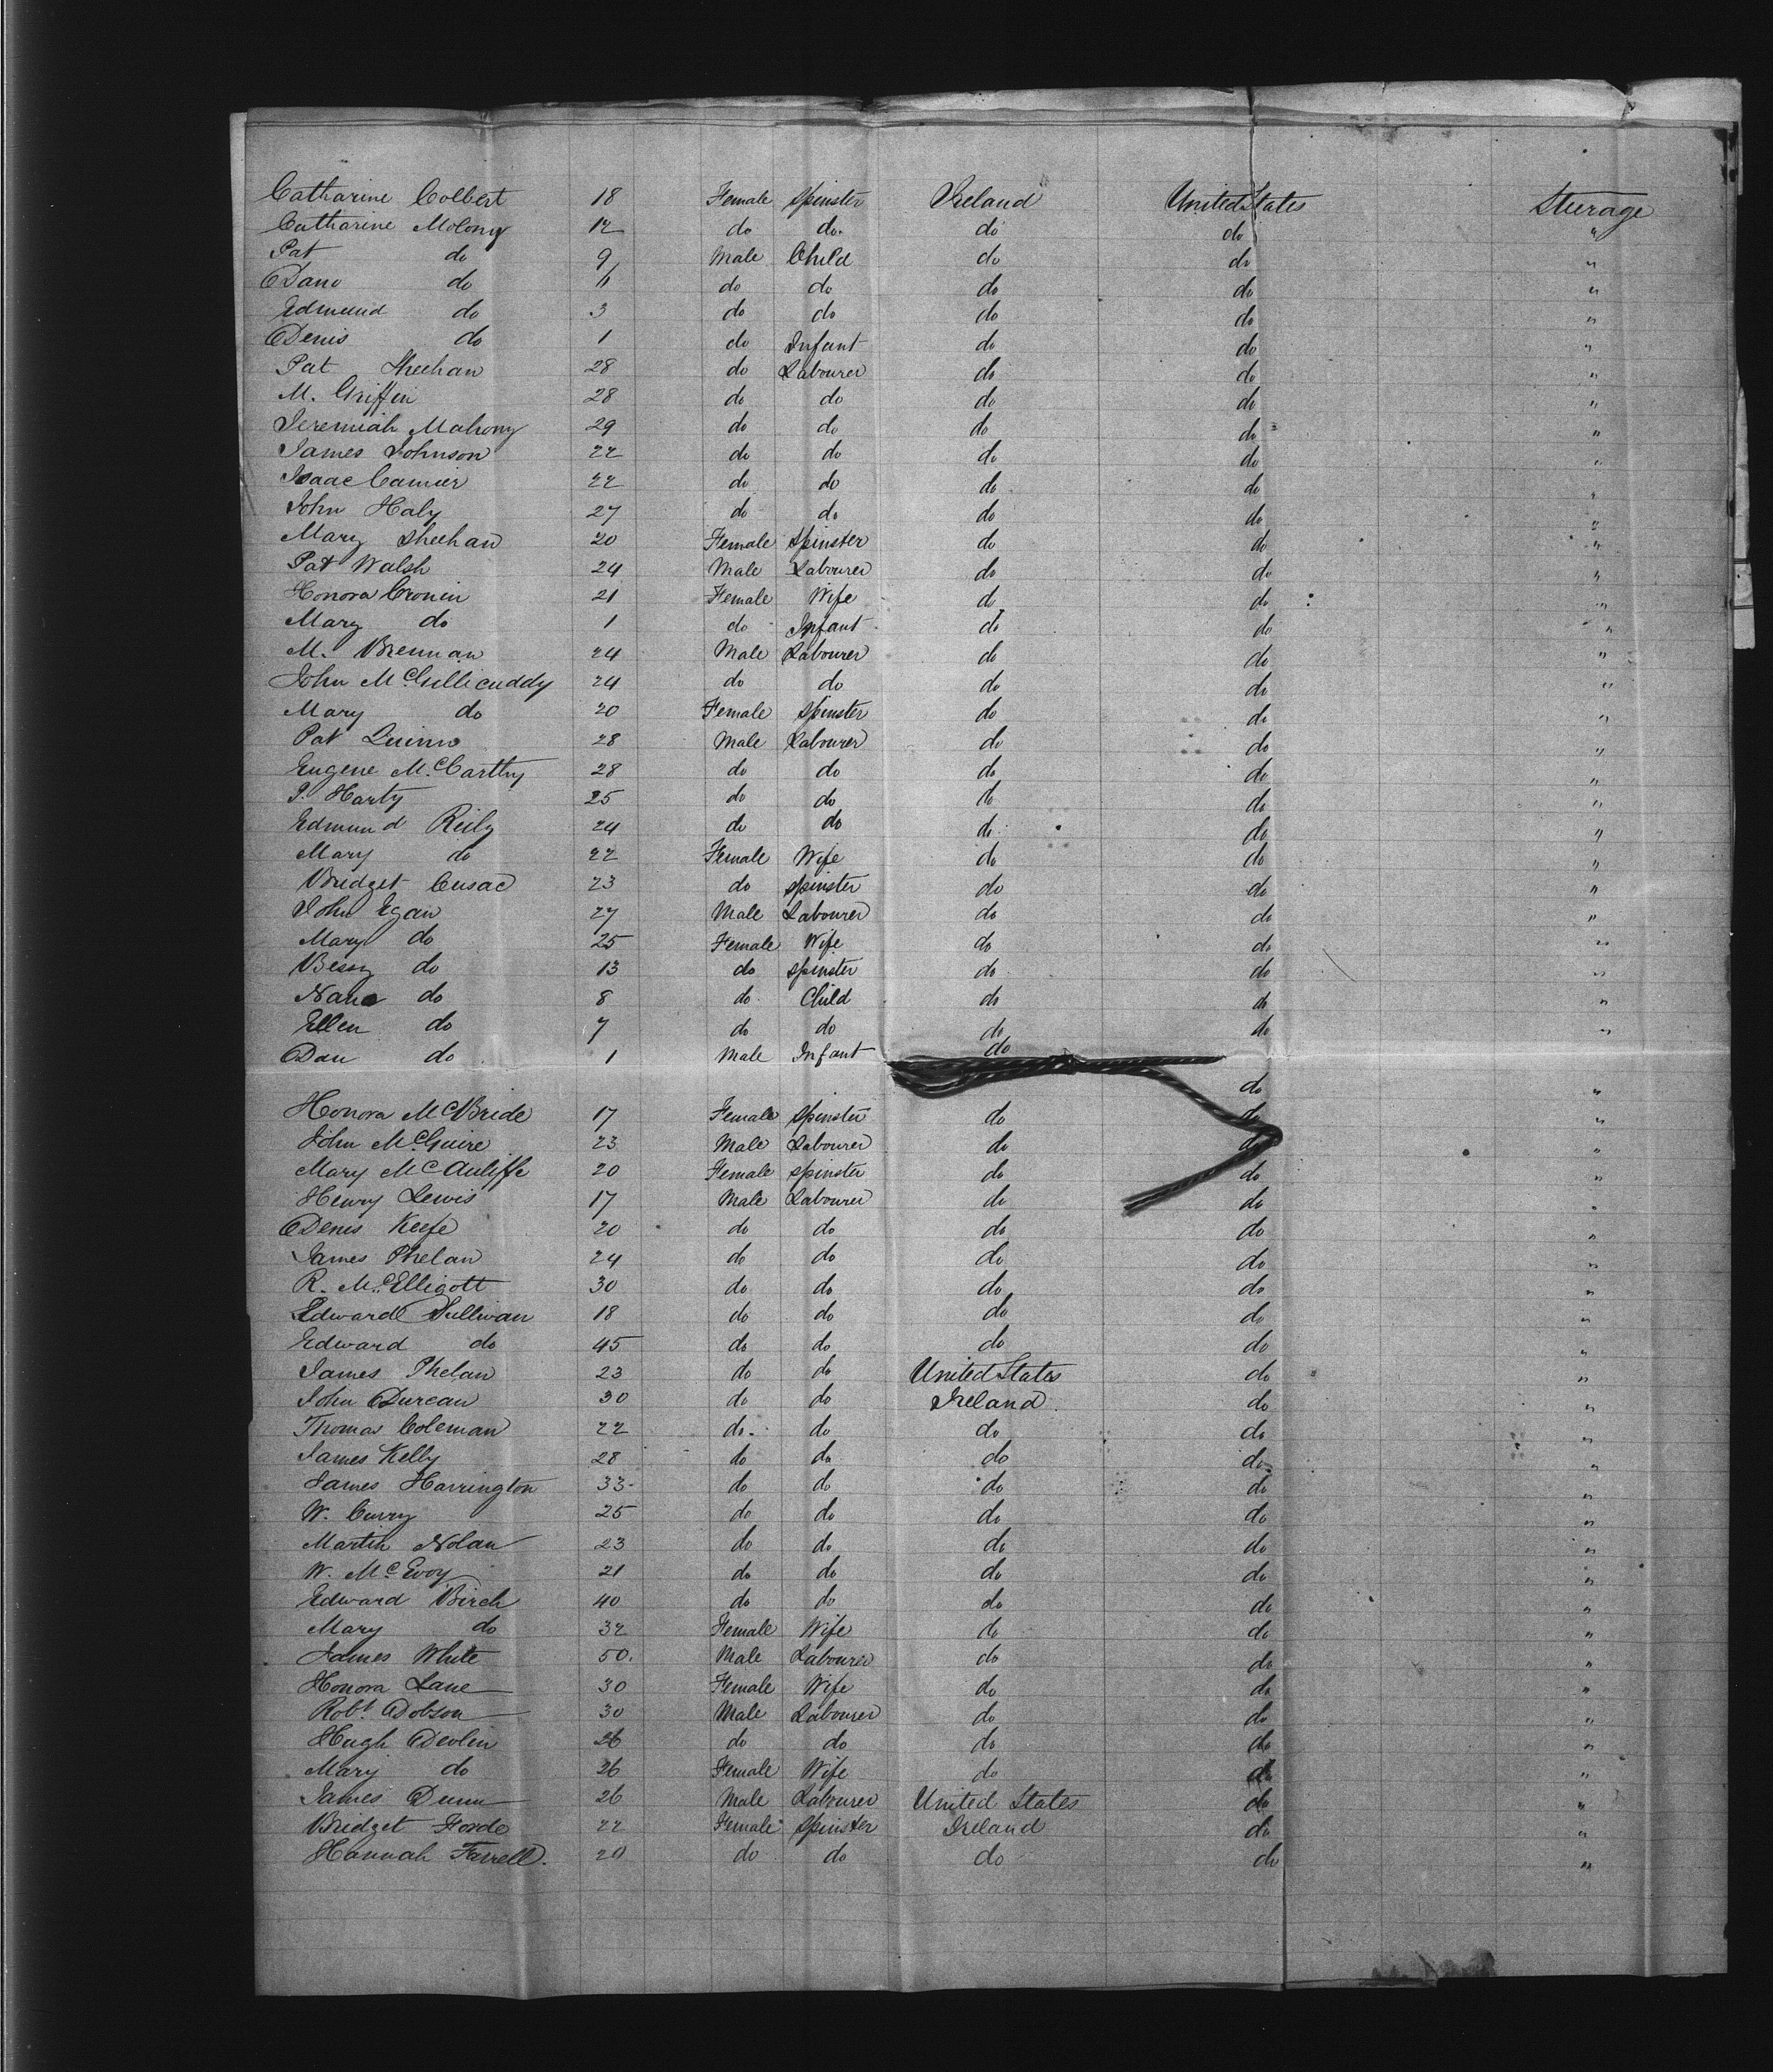 Catharine Colbert 18 Female Spinster Ireland United States Steerage
Catharine Molony 12 do do do do "
Pat do 9 Male Child do do "
Dano do 6 do do do do "
Edmund do 3 do do do do "
Denis do 1 do Infant do do "
Pat Sheehan 28 do Labourer do do "
M. Griffin 28 do do do do "
Jeremiah Mahony 29 do do do do "
James Johnson 22 do do do do "
Isaac Camier 22 do do do do "
John Haly 27 do do do do "
Mary Sheehan 20 Female Spinster do do "
Pat Walsh 24 Male Labourer do do "
Honora Cronin 21 Female Wife do do "
Mary do 1 do Infant do do "
M. Brennan 24 Male Labourer do do "
John McGillicuddy 24 do do do do "
Mary do 20 Female Spinster do do "
Pat Quinn 28 Male Labourer do do "
Eugene McCarthy 28 do do do do "
P. Harty 25 do do do do "
Edmund Reily 24 do do do do "
Mary do 22 Female Wife do do "
Bridget Cusac 23 do Spinster do do "
John Egan 27 Male Labourer do do "
Mary do 25 Female Wife do do "
Bessy do 13 do Spinster do do "
Nano do 8 do Child do do "
Ellen do 7 do do do do "
Dan do 1 Male Infant do do "
Honora McBride 17 Female Spinster do do "
John McGuire 23 Male Labourer do do "
Mary McAuliffe 20 Female Spinster do do "
Henry Lewis 17 Male Labourer do do "
Denis Keefe 20 do do do do "
James Phelan 24 do do do do "
R. McElligott 30 do do do do "
Edward Sullivan 18 do do do do "
Edward do 45 do do do do "
James Phelan 23 do do United States do "
John Duncan 30 do do Ireland do "
Thomas Coleman 22 do do do do "
James Kelly 28 do do do do "
James Harrington 33 do do do do "
W. Curry 25 do do do do "
Martin Nolan 23 do do do do "
W. McEvoy 21 do do do do "
Edward Birch 40 do do do do "
Mary do 32 Female Wife do do "
James White 50. Male Labourer do do "
Honora Lane 30 Female Wife do do "
Robt. Dobson 30 Male Labourer do do "
Hugh Devlin 26 do do do do "
Mary do 26 Female Wife do do "
James Dunn 26 Male Labourer United States do "
Bridget Forde 22 Female Spinster Ireland do "
Hannah Farrell. 20 do do do do "